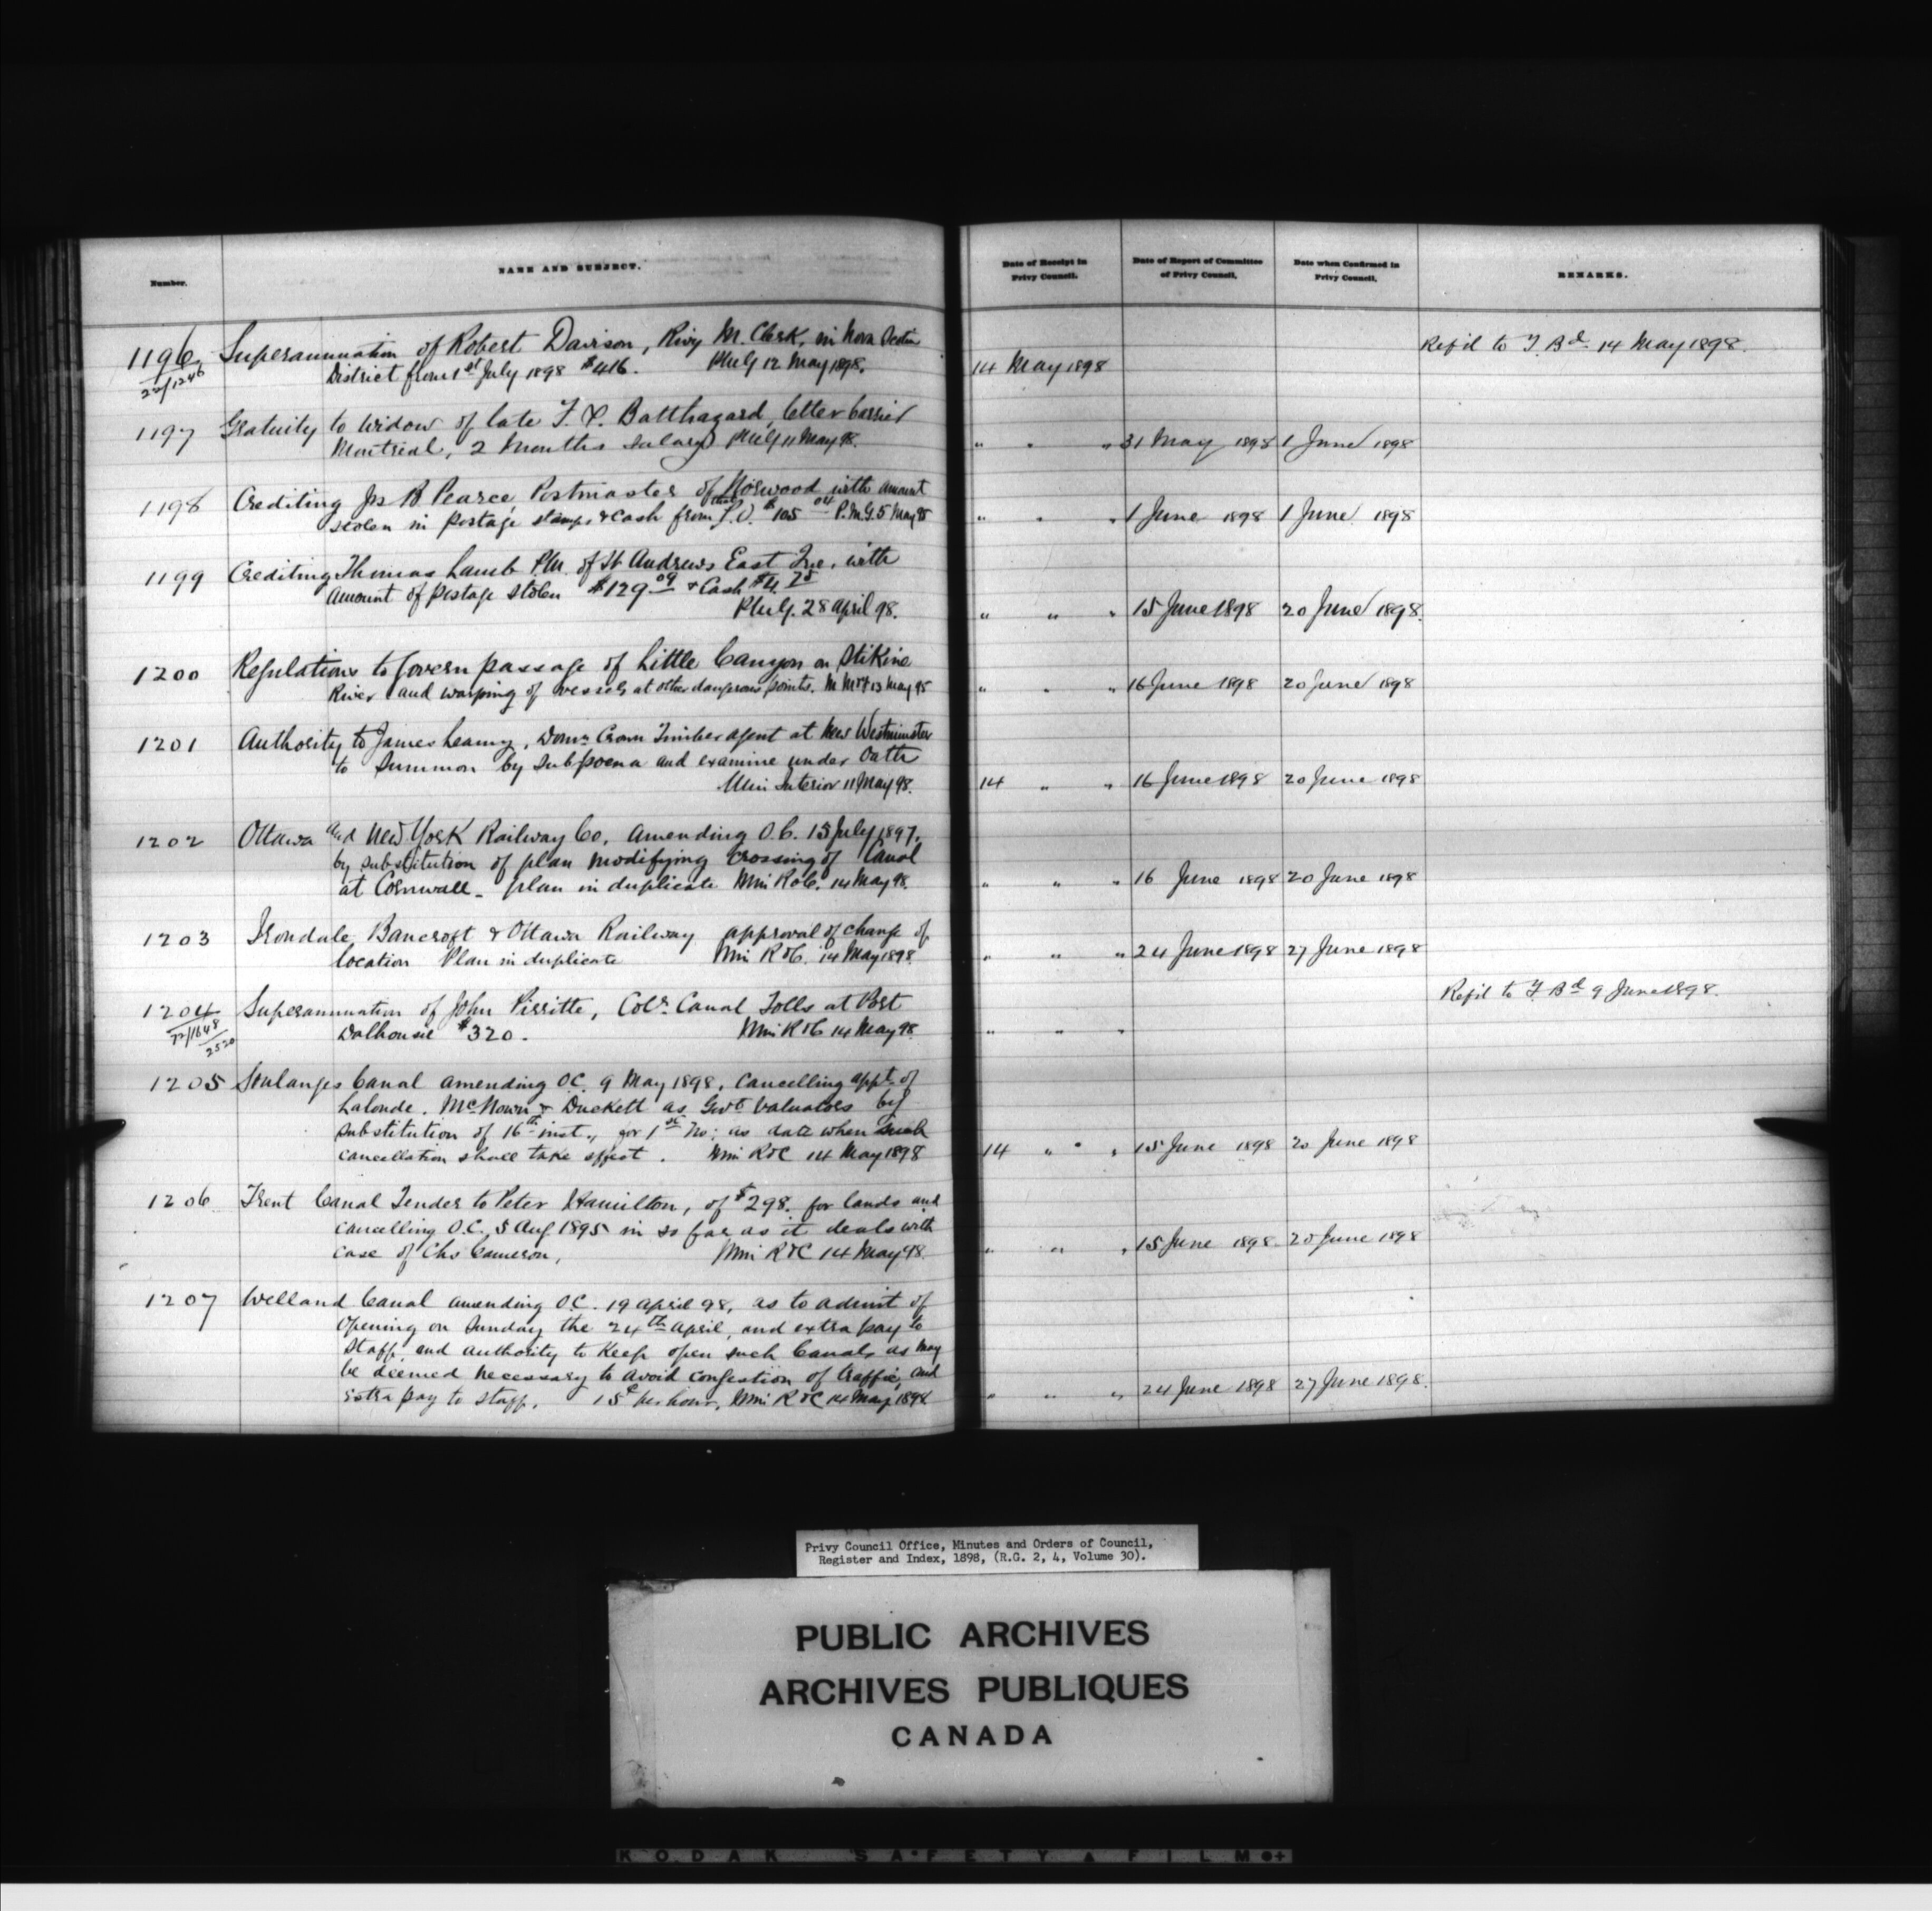 Number.
NAME AND SUBJECT.
Date of Receipt in
Privy Council.
Date of Report of Committee
of Privy Council.
Date when Confirmed in
Privy Council.
REMARKS.
1196 Superannuation of Robert Davison, Rwy M. Clerk, in Nova Scotia Ref'd to T. Bd 14 May 1898.
22/1246 District from 1st July 1898 $416. PMG 12 May 1898. 14 May 1898
1197 Gratuity to widow of late F. X. Batthazard, letter Carrier
Montreal, 2 months salary PMG 11 May 98. " " " 31 May 1898 1 June 1898
1198 Crediting Jas B Pearce, Postmaster of Norwood with amount
stolen in postage stamps & Cash from P.O. $105 04 P.M.G. 5 May 98 " " " 1 June 1898 1 June 1898
1199 Crediting Thomas Lamb P.M. of St Andrews East Que. with
amount of postage stolen $129.09 & Cash $4.75
PMG. 28 April 98. " " " 15 June 1898 20 June 1898.
1200 Regulations to Govern passage of Little Canyon on Stikine
River and warping of vessels at other dangerous points. M M&F 13 May 98 " " " 16 June 1898 20 June 1898
1201 Authority to James Leamy, Domn Crown Timber agent at New Westminster
to Summon by Subpoena and examine under Oath
Min Interior 11 May 98. 14 " " 16 June 1898 20 June 1898
1202 Ottawa and New York Railway Co. amending O.C. 15 July 1897,
by substitution of plan modifying crossing of Canal
at Cornwall - plan in duplicate Min R&C. 14 May 98. " " " 16 June 1898 20 June 1898
1203 Irondale Bancroft & Ottawa Railway approval of change of
location Plan in duplicate Min R&C. 14 May 1898 " " " 24 June 1898 27 June 1898
1204 Superannuation of John Pirritte, Colr Canal Tolls at Port Ref'd to T. Bd 9 June 1898.
22/1648 Dalhousie $320. Min R&C 14 May 98 " " "
2520
1205 Soulanges Canal amending OC. 9 May 1898, Cancelling appt of
Lalonde, McNown & Duckett as Govt Valuators by
substitution of 16th inst., for 1st No: as date when such
cancellation shall take effect. Min R&C 14 May 1898 14 " " 15 June 1898 20 June 1898
1206 Trent Canal Tender to Peter Hamilton, of $298. for lands and
cancelling O.C. 5 Aug 1895 in so far as it deals with
case of Chs Cameron, Min R&C 14 May 98. " " " 15 June 1898 20 June 1898
1207 Welland Canal amending O.C. 19 April 98, as to admit of
opening on Sunday the 24th April, and extra pay to
Staff, and authority to Keep open such Canals as may
be deemed necessary to avoid congestion of traffic, and
extra pay to staff. 15c per hour, Min R&C 14 May 1898 " " " 24 June 1898 27 June 1898.
Privy Council Office, Minutes and Orders of Council,
Register and Index, 1898, (R.G. 2, 4, Volume 30).
PUBLIC ARCHIVES
ARCHIVES PUBLIQUES
CANADA
KODAK SAFETY FILM